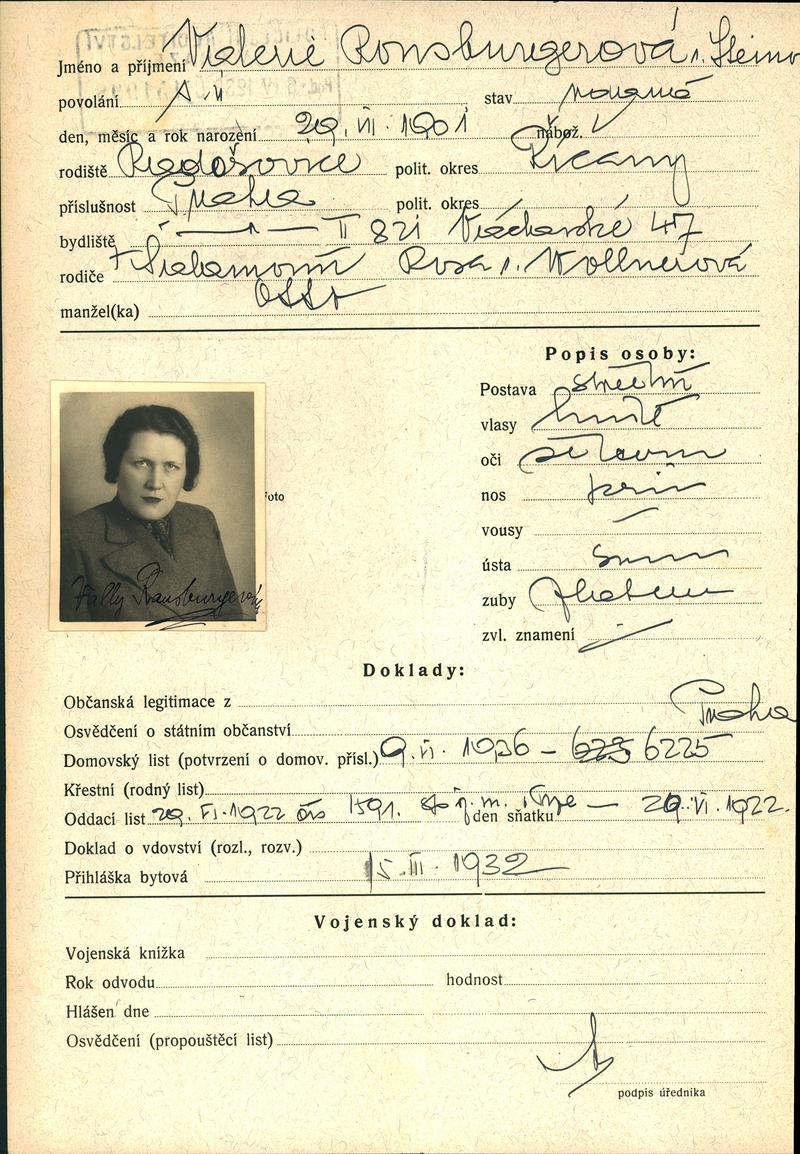 Jméno a příjmení Valerie Ronsburgerová r. Stein
povolání
stav
den, měsíc a rok narození 29. VI. 1901 nábož.
rodiště Radošovice polit. okres Říčany
příslušnost Praha polit. okres
bydliště — " — II 821 47
rodiče Rosa r. Wollnerová
manžel(ka) Otto
Popis osoby:
Postava střední
vlasy hnědé
oči
nos
vousy —
ústa
zuby
zvl. znamení
foto
Vally Ronsburgerová
Doklady:
Občanská legitimace z
Osvědčení o státním občanství Praha
Domovský list (potvrzení o domov. přísl.) 9. VI. 1936 — 6225
Křestní (rodný list)
Oddací list 29. VI. 1922 čís 1591. den sňatku — 29. VI. 1922.
Doklad o vdovství (rozl., rozv.)
Přihláška bytová 15. III. 1932
Vojenský doklad:
Vojenská knížka
Rok odvodu hodnost
Hlášen dne
Osvědčení (propouštěcí list)
podpis úředníka